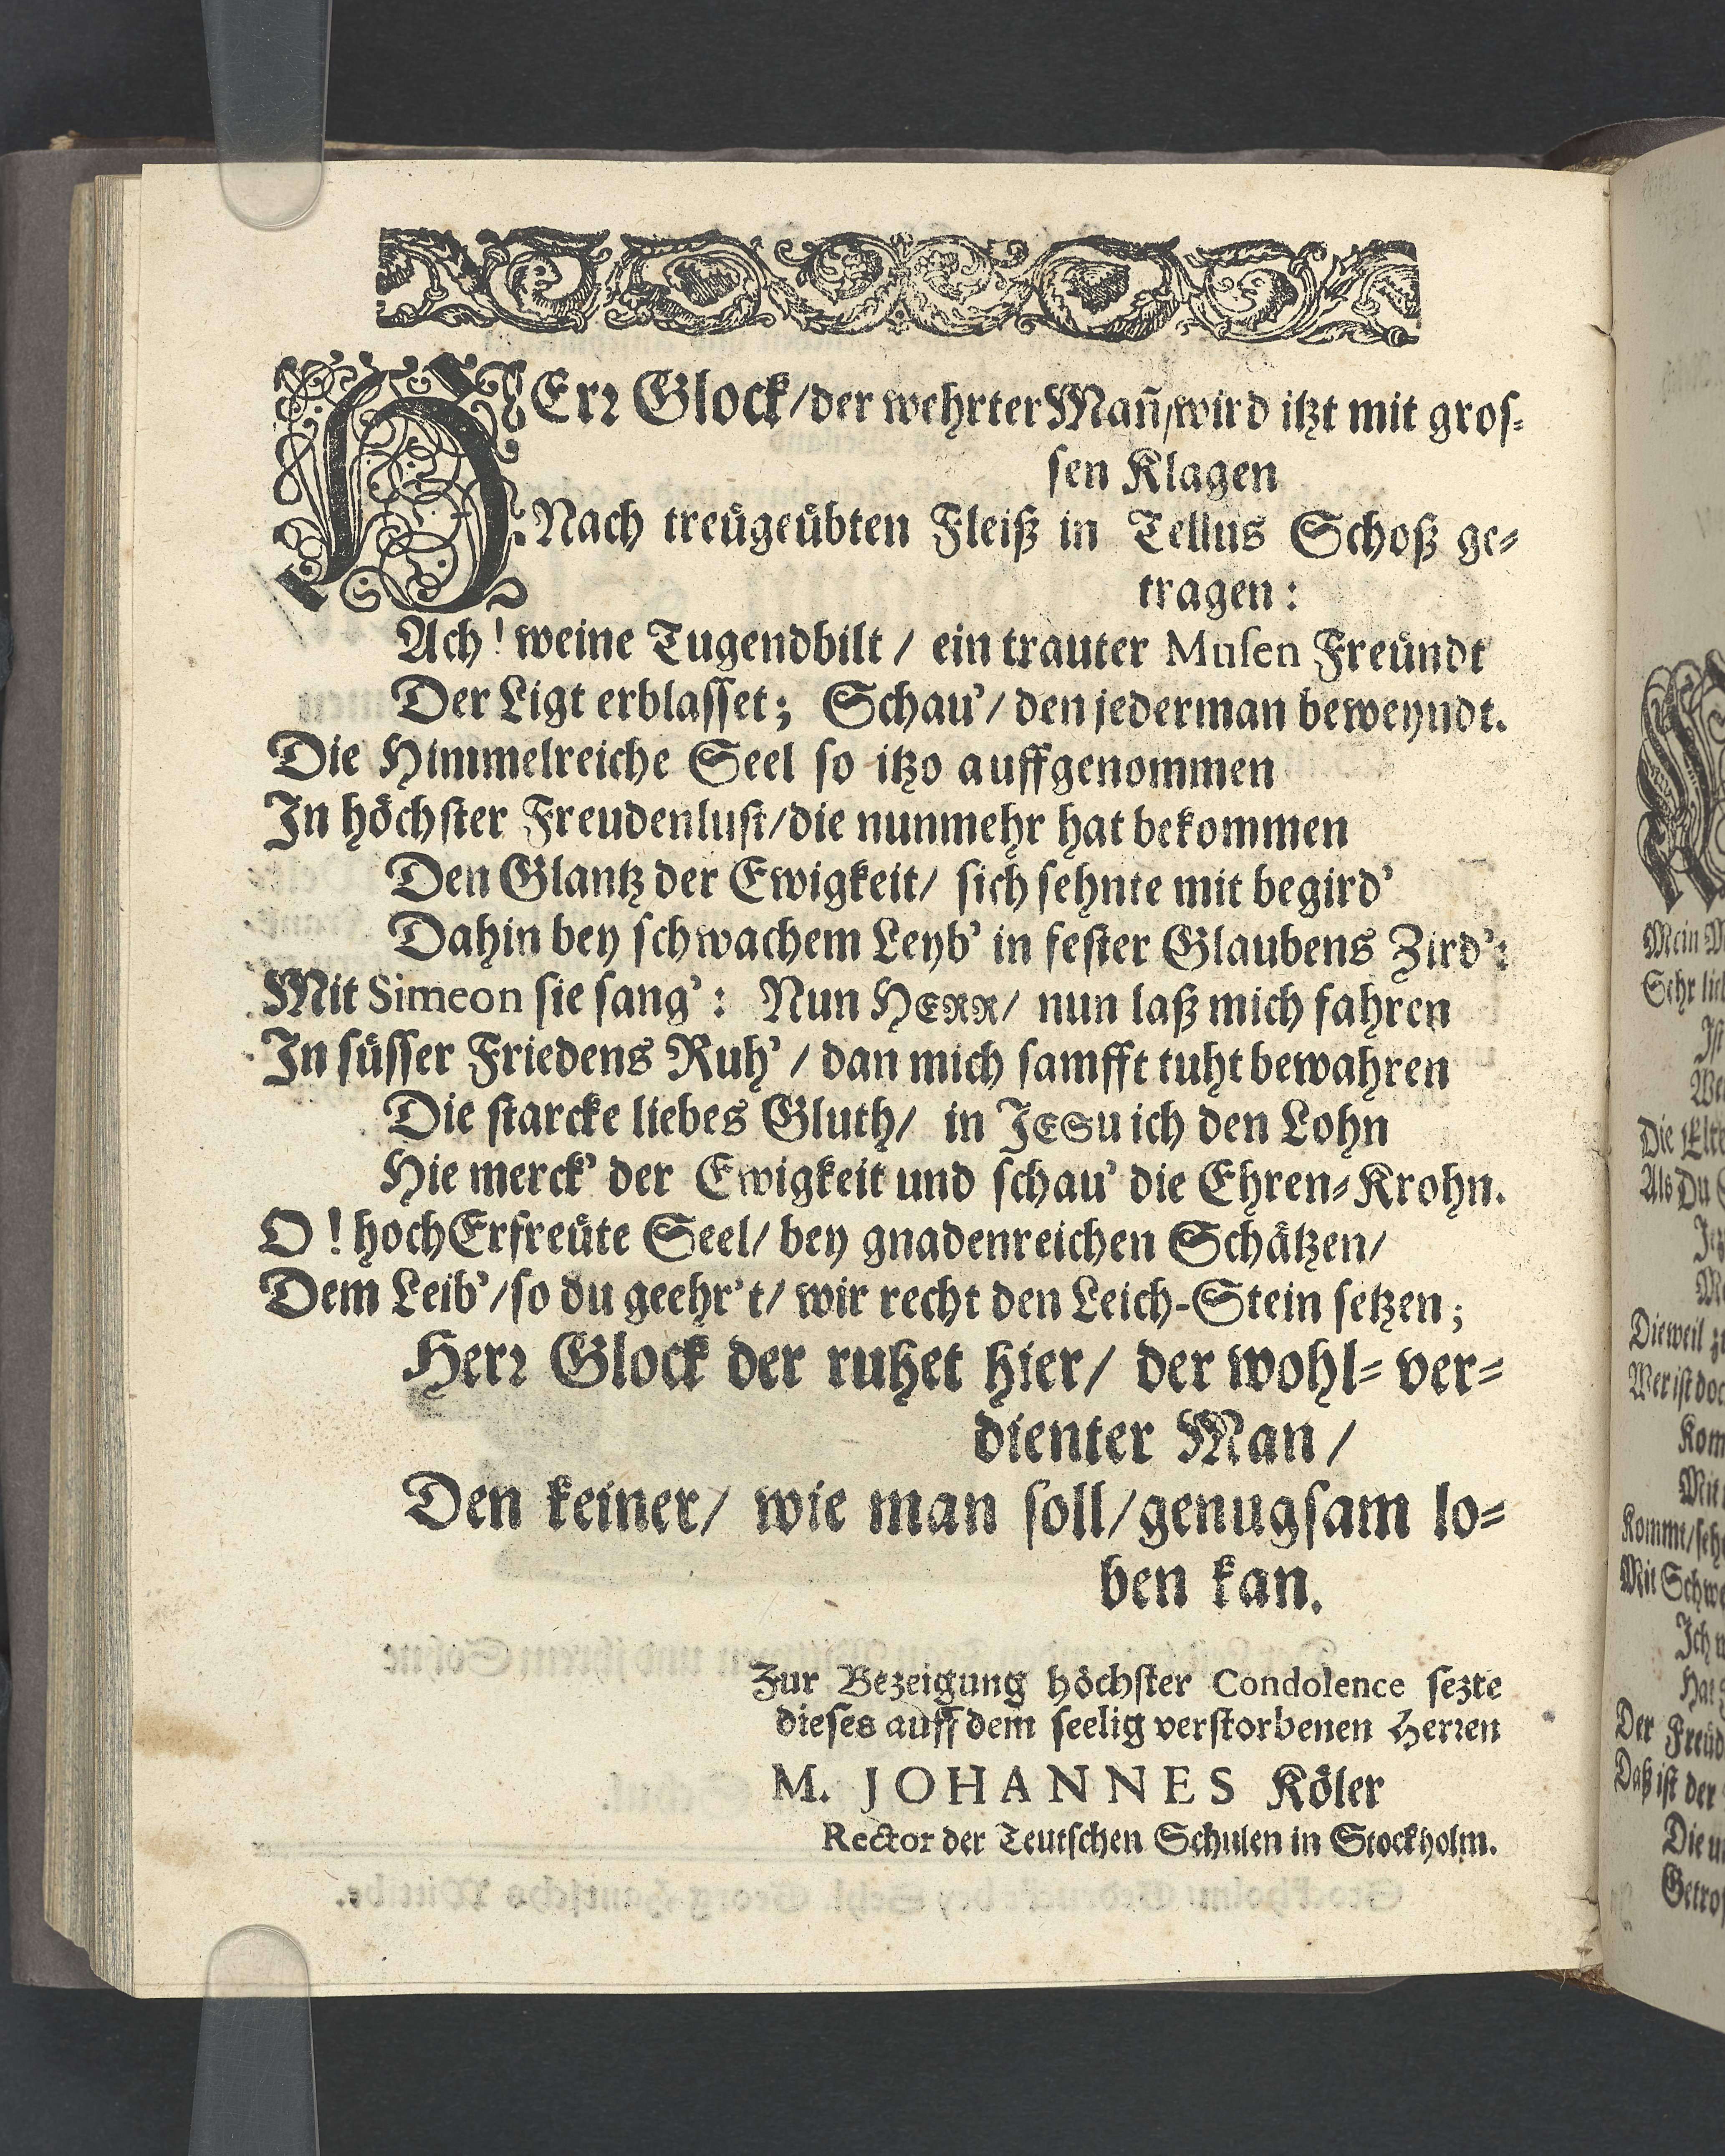 HErꝛ Glock/der wehrter Mañ/wird itzt mit groſ⸗
ſen Klagen
Nach treuͤgeuͤbten Fleiß in Tellus Schoß ge⸗
tragen:
Ach! weine Tugendbilt/ ein trauter Muſen Freuͤndt
Der Ligt erblaſſet; Schau'/ den jederman beweyndt.
Die Himmelreiche Seel ſo itzo auffgenommen
In hoͤchſter Freudenluſt/die nunmehr hat bekommen
Den Glantz der Ewigkeit/ ſich ſehnte mit begird'
Dahin bey ſchwachem Leyb' in feſter Glaubens Zird':
Mit Simeon ſie ſang': Nun HERR/ nun laß mich fahren
In ſuͤſſer Friedens Ruh'/ dan mich ſamfft tuht bewahren
Die ſtarcke liebes Gluth/ in JESu ich den Lohn
Hie merck' der Ewigkeit und ſchau' die Ehren⸗Krohn.
O! hochErfreuͤte Seel/ bey gnadenreichen Schaͤtzen/
Dem Leib'/ſo du geehr't/ wir recht den Leich-Stein ſetzen;
Herꝛ Glock der ruhet hier/ der wohl⸗ ver⸗
dienter Man/
Den keiner/ wie man ſoll/genugſam lo⸗
ben kan.
Zur Bezeigung hoͤchſter Condolence ſezte
dieſes auff dem ſeelig verſtorbenen Herꝛen
M. JOHANNES Koͤler
Rector der Teutſchen Schulen in Stockholm.